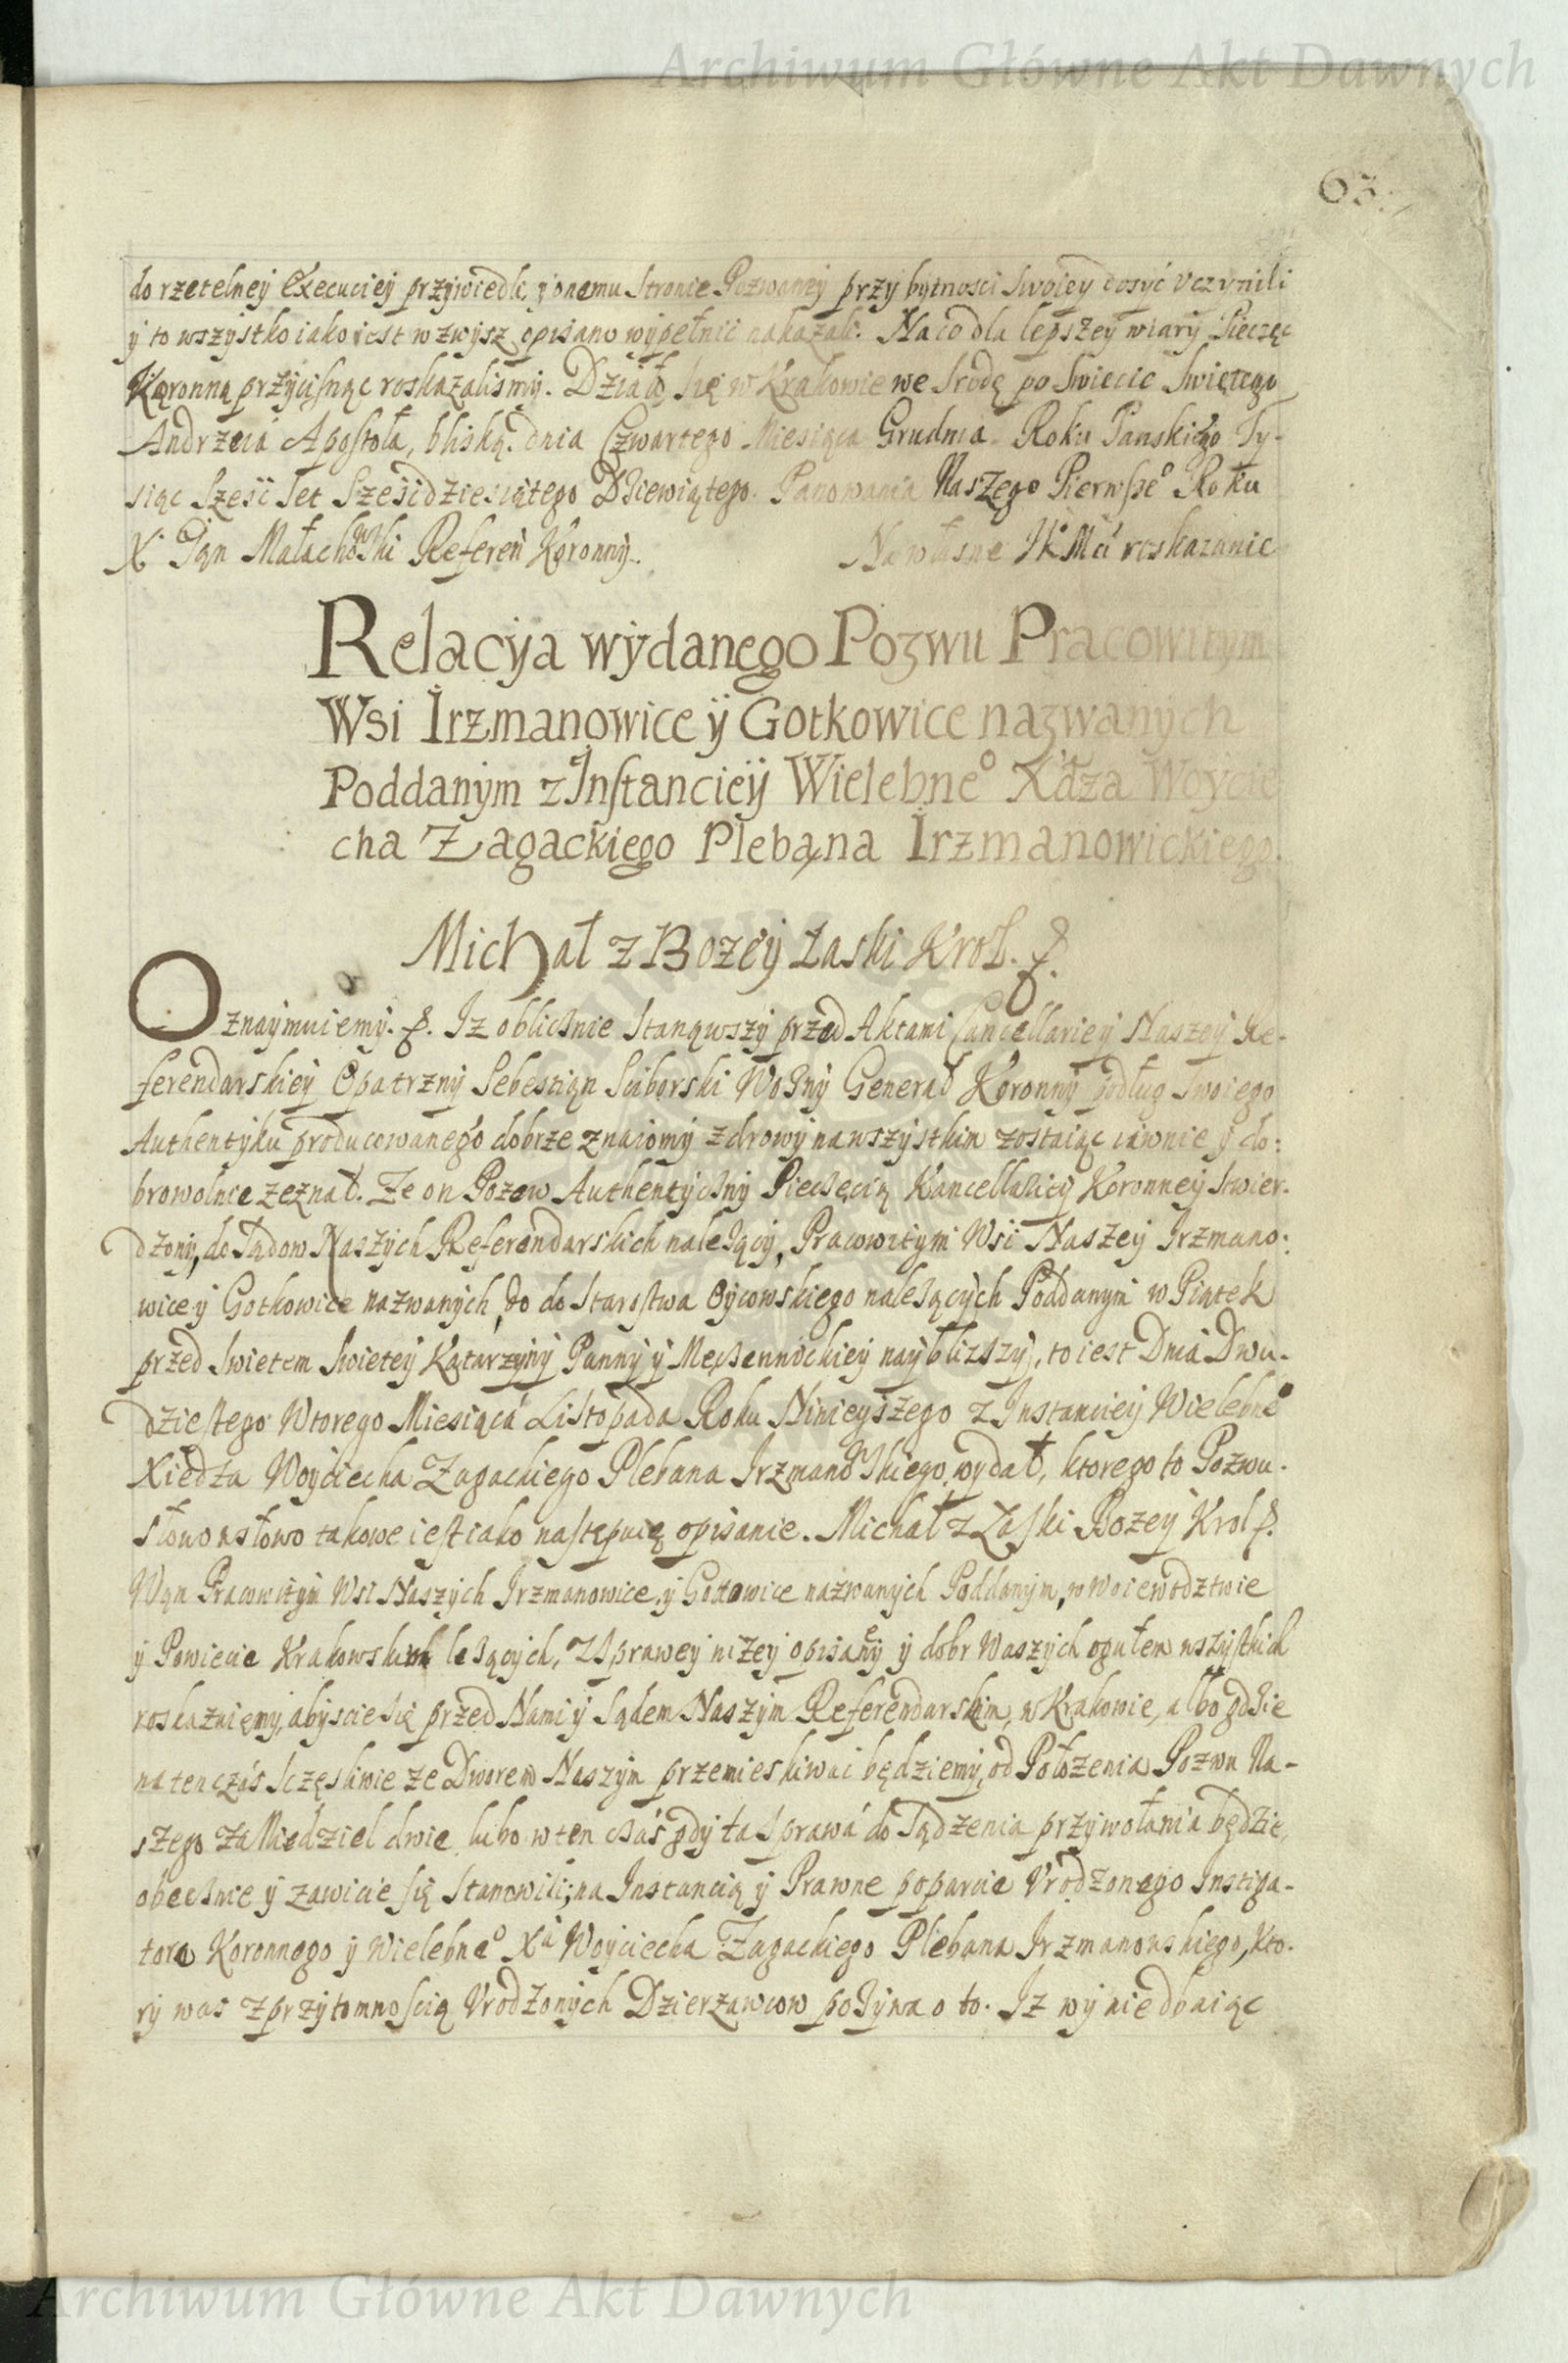 Archiwum Główne Akt Dawnych
63.
do rzetelney Execuciey przywiedli, y onemu Stronie Pozwaney przy bytnosci swoiey dosyć vczynili
y to wszystko iako iest wzwysz opisano wypełnić nakazali. Na co dla lepszey wiary Pieczęc
Koronną przycisnąc roskazalismy. Działo się w Krakowie we Srodę po Swiecie Swiętego
Andrzeia Apostoła, bliską. dnia Czwartego Miesiąca Grudnia. Roku Panskiego Ty-
siąc Szesc Set Szescdziesiątego Dziewiątego. Panowania Naszego Pierwsze° Roku
X. Jan Małachowski Referen Koronny. Na własne JKMći roskazanie
Relacyja wydanego Pozwu Pracowitym
Wsi Irzmanowice ÿ Gotkowice nazwanych
Poddanym z Instancieÿ Wielebne° Xdza Woycie
cha Zagackiego Plebana Irzmanowickiego.
Michał z Bozey Łaski Krol. &.
Oznaymuiemy. &. Iz oblicznie stanąwszy przed Aktami Cancellariey Naszey Re-
ferendarskiey Opatrzny Sebestian Sciborski Wozny Generał Koronny podług swoiego
Authentyku producowanego dobrze znaiomy zdrowy na wszystkim zostaiąc iawnie y do:
browolnie zeznał. Ze on Pozew Authentyczny Pieczęcią Kancellariey Koronney stwier-
dzony, do Sądow Naszych Referendarskich nalezący, Pracowitym Wsi Naszey Irzmano:
wice y Gotkowice nazwanych, do do Starostwa Oycowskiego nalezących Poddanym w Piątek
przed Swietem Swietey Katarzyny Panny y Meczennickiey nayblizszy, to iest Dnia Dwu-
dziestego Wtorego Miesiąca Listopada Roku Ninieyszego z Instanciey Wielebne°
Xiedza Woyciecha Zagackiego Plebana Irzmanowskiego wydał, ktorego to Pozwu.
słowo nsłowo takowe iest iako nastepuie opisanie. Michał z Łaski Bozey Krol &.
Wąm Pracowitym Wsi Naszych Irzmanowice, y Gotkowice nazwanych Poddanym, w Woiewodztwie
y Powiecie Krakowskim lezących, z Sprawey nizey opisaney y dobr Waszych ogułem wszystkich
roskazuięmy, abyscie się przed Nami y Sądem Naszym Referendarskim, w Krakowie, albo gdzie
na ten czás szczęsliwie ze Dworem Naszym przemieskiwac będziemy, od Połozenia Pozwu Na-
szego za Niedziel dwie, lubo w ten czás gdy ta Sprawá do Sądzenia przywołania będzie,
obecznie y zawicie się stanowili; na Instancią y Prawne poparcie Vrodzonego Instiga-
tora Koronnego y Wielebne° Xa Woyciecha Zagackiego Plebana Irzmanowskiego, kto-
ry was z przytomnoscią Vrodzonych Dzierzawcow pozywa o to. Iz wy niedbaiąc
Archiwum Główne Akt Dawnych